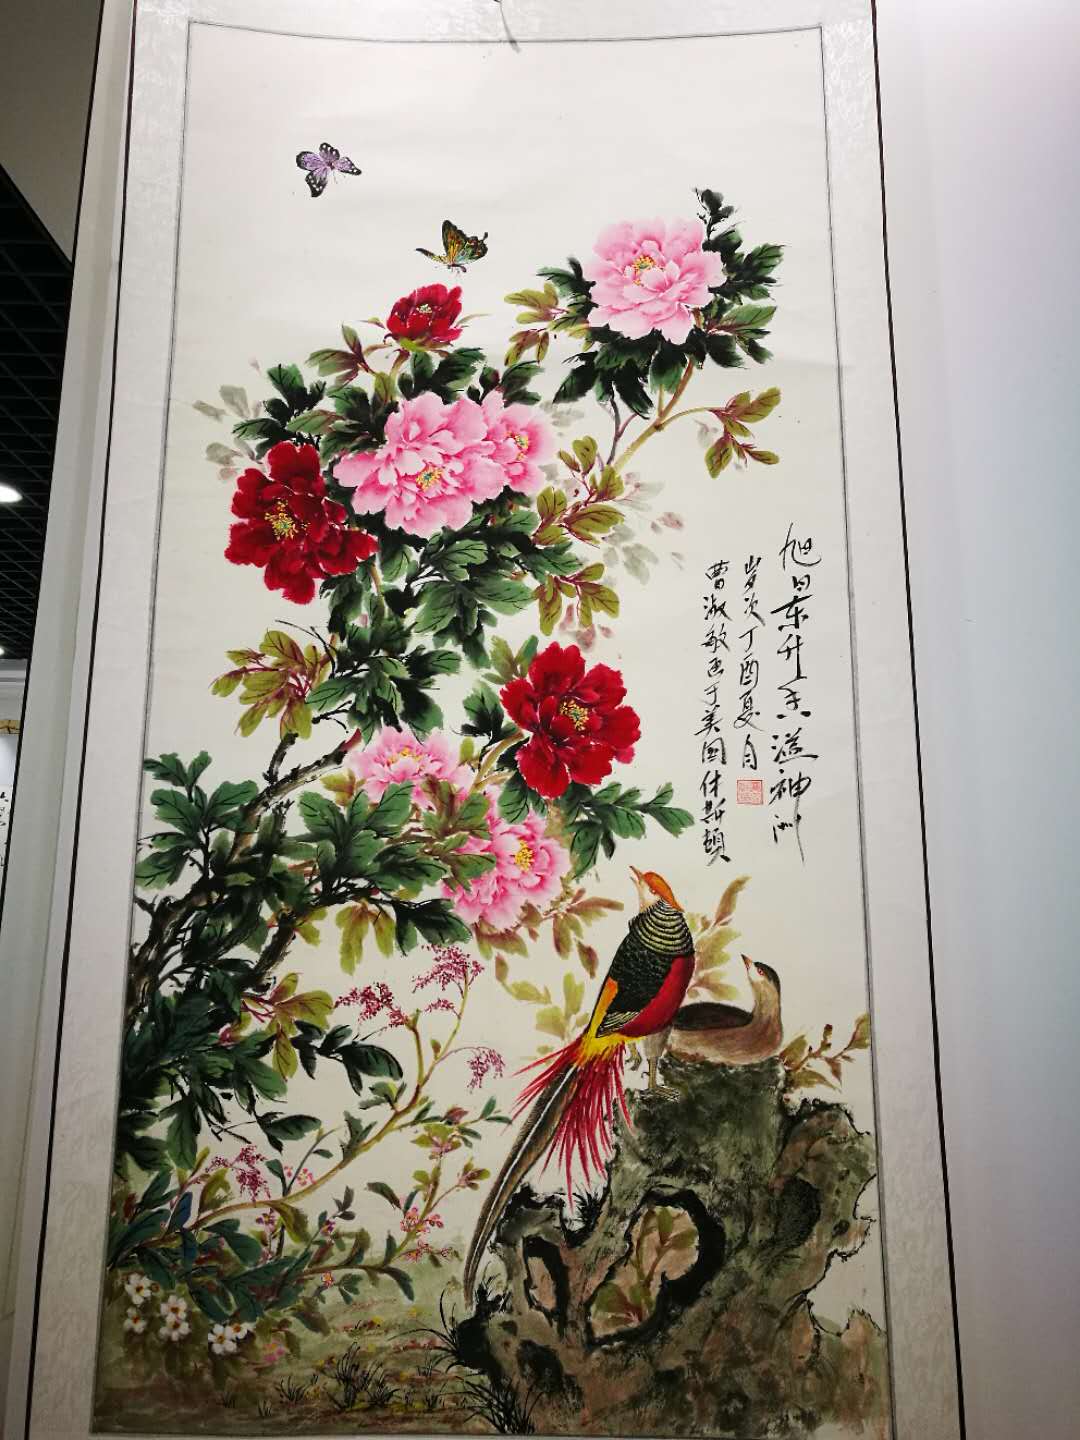 旭日东升香溢神洲
岁次丁酉夏月
曹淑敏画于美国休斯顿